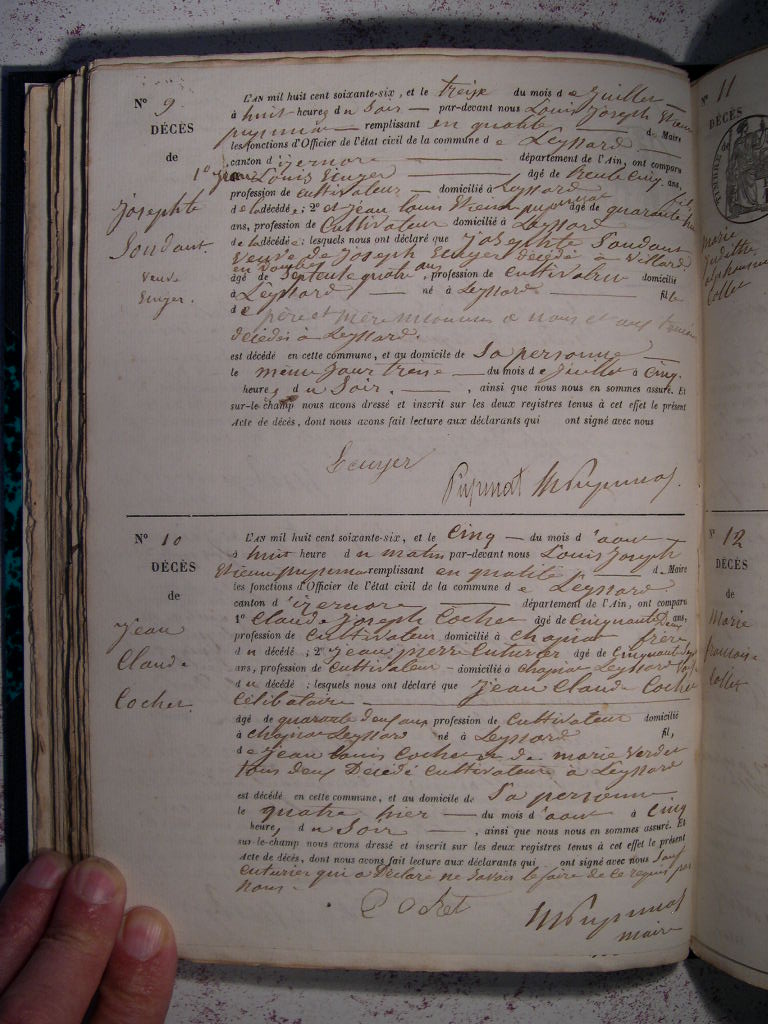 N° 9
DÉCÈS
de
Josephte
Soudant
veuve
Euyer.
L'AN mil huit cent soixante-six, et le treize du mois de juillet
à huit heures du Soir par-devant nous Louis Joseph Etienne
pupunat remplissant en qualité de Maire
les fonctions d'Officier de l'état civil de la commune de Leyssard
canton d'izernore département de l'Ain, ont comparu
1° Louis Euyer âgé de trente cinq ans,
profession de cultivateur domicilié à Leyssard fils
de la décédée; 2° et jean Louis Etienne pupunat âgé de quarante
ans, profession de Cultivateur domicilié à Leyssard
de la décédée; lesquels nous ont déclaré que Josephte Soudant
veuve de Joseph Euyer décédé à villard
en dombes
âgé de Septente quatre ans, profession de cultivatrice domicilié
à Leyssard né à Leyssard fille
de père et mère inconnus à nous et aux temoins
décédés à Leyssard.
est décédé en cette commune, et au domicile de Sa personne
le meme jour treize du mois de juillet à cinq
heures du Soir, ainsi que nous nous en sommes assuré. Et
sur-le-champ nous avons dressé et inscrit sur les deux registres tenus à cet effet le présent
Acte de décès, dont nous avons fait lecture aux déclarants qui ont signé avec nous
Euyer
Pupunat
N° 10
DÉCÈS
de
Jean
Claude
Cochet
L'AN mil huit cent soixante-six, et le Cinq du mois d'aout
à huit heure du matin par-devant nous Louis Joseph
Etienne pupunat remplissant en qualité de Maire
les fonctions d'Officier de l'état civil de la commune de Leyssard
canton d'izernore département de l'Ain, ont comparu
1° Claude Joseph Cochet âgé de Cinquante Deux ans,
profession de Cultivateur domicilié à Chapiat frère
du décédé; 2° jean pierre Cuturier âgé de Cinquante
ans, profession de Cultivateur domicilié à Chapiat Leyssard
du décédé; lesquels nous ont déclaré que Jean Claude Cochet
Célibataire
âgé de quarante deux ans profession de Cultivateur domicilié
à Chapiat Leyssard né à Leyssard fil,
de jean Louis Cochet et de marie verdet
tous deux Décédé Cultivateurs à Leyssard
est décédé en cette commune, et au domicile de Sa personne
le quatre hier du mois d'aout à Cinq
heures du Soir, ainsi que nous nous en sommes assuré. Et
sur-le-champ nous avons dressé et inscrit sur les deux registres tenus à cet effet le présent
Acte de décès, dont nous avons fait lecture aux déclarants qui ont signé avec nous Sauf
Cuturier qui a Déclaré ne Savoir le faire de ce requis par
nous.
maire
N° 11
DÉCÈS
de
marie
Judithe
Collet
N° 12
DÉCÈS
de
Marie
francoise
Collet